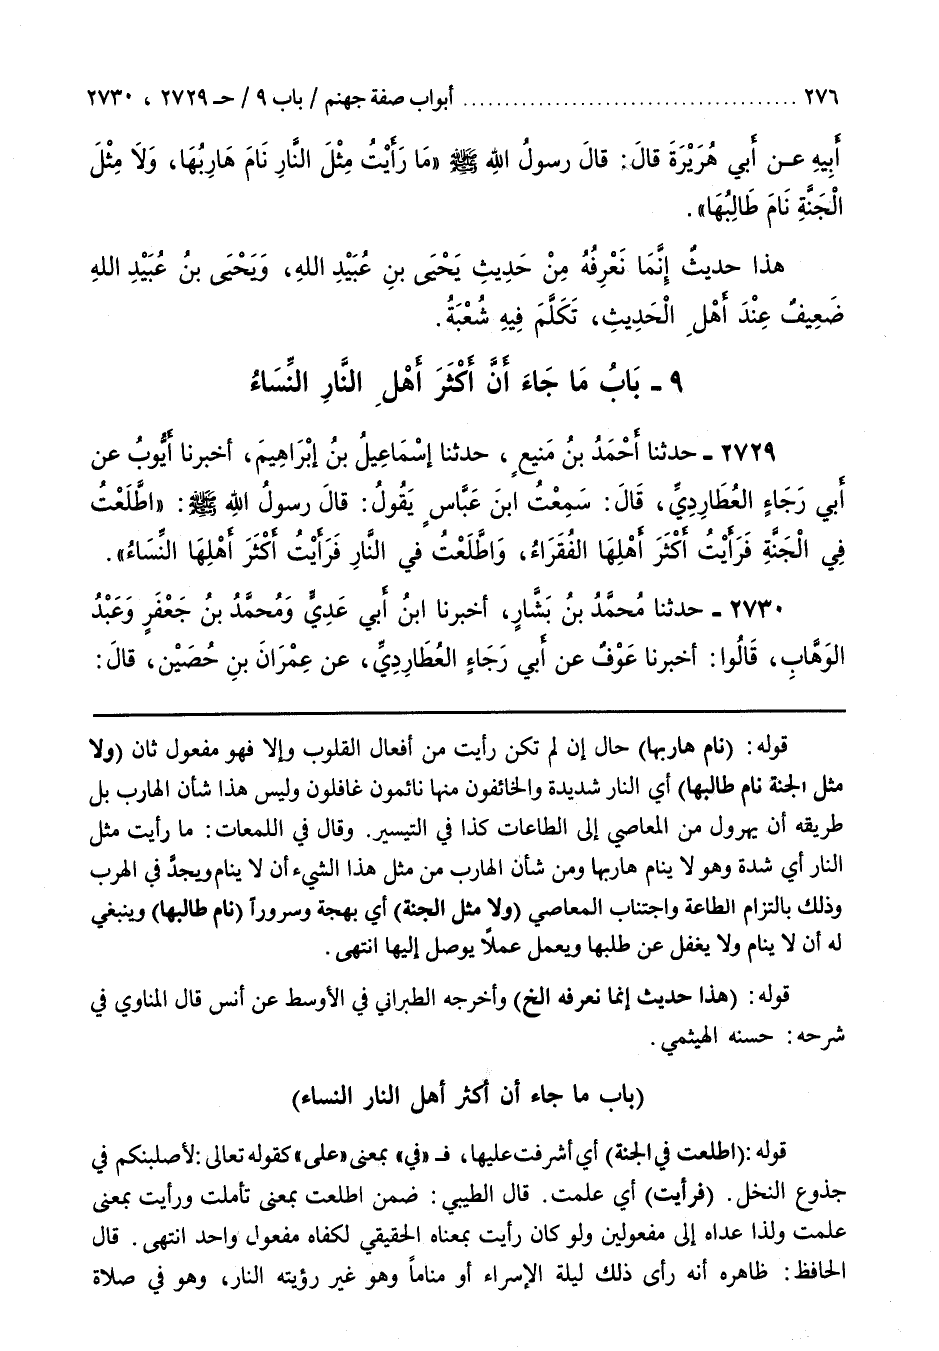 ٢٧٦ ..................................... أبواب صفة جهنم / باب ٩ / حـ ٢٧٢٩ ، ٢٧٣٠
أَبِيهِ عـن أَبي هُرَيْرَةَ قالَ: قالَ رسولُ اللهِ ﷺ «مَا رَأَيْتُ مِثْلَ النَّارِ نَامَ هَارِبُهَا، وَلَا مِثْلَ
الْجَنَّةِ نَامَ طَالِبُهَا».
هذا حديثٌ إِنَّمَا نَعْرِفُهُ مِنْ حَدِيثِ يَحْيَى بنِ عُبَيْدِ اللهِ، وَيَحْيَى بنُ عُبَيْدِ اللهِ
ضَعِيفٌ عِنْدَ أَهْلِ الْحَدِيثِ، تَكَلَّمَ فِيهِ شُعْبَةُ.
٩ ـ بَابُ مَا جَاءَ أَنَّ أَكْثَرَ أَهْلِ النَّارِ النِّسَاءُ
٢٧٢٩ ـ حدثنا أَحْمَدُ بنُ مَنيعٍ، حدثنا إسْمَاعِيلُ بنُ إبْرَاهِيمَ، أخبرنا أَيُّوبُ عن
أَبي رَجَاءٍ العُطَارِدِيِّ، قَالَ: سَمِعْتُ ابنَ عَبَّاسٍ يَقُولُ: قالَ رسولُ اللهِ ﷺ: «اطَّلَعْتُ
فِي الْجَنَّةِ فَرَأَيْتُ أَكْثَرَ أَهْلِهَا الفُقَرَاءُ، وَاطَّلَعْتُ في النَّارِ فَرَأَيْتُ أَكْثَرَ أَهْلِهَا النِّسَاءُ».
٢٧٣٠ ـ حدثنا مُحمَّدُ بنُ بَشَّارٍ، أخبرنا ابنُ أَبي عَدِيٍّ وَمُحمَّدُ بنُ جَعْفَرٍ وَعَبْدُ
الوَهَّابِ، قَالُوا: أخبرنا عَوْفٌ عن أَبي رَجَاءٍ العُطَارِدِيِّ، عن عِمْرَانَ بنِ حُصَيْنٍ، قالَ:
قوله: (نام هاربها) حال إن لم تكن رأيت من أفعال القلوب وإلا فهو مفعول ثان (ولا
مثل الجنة نام طالبها) أي النار شديدة والخائفون منها نائمون غافلون وليس هذا شأن الهارب بل
طريقه أن يهرول من المعاصي إلى الطاعات كذا في التيسير. وقال في اللمعات: ما رأيت مثل
النار أي شدة وهو لا ينام هاربها ومن شأن الهارب من مثل هذا الشيء أن لا ينام ويجدَّ في الهرب
وذلك بالتزام الطاعة واجتناب المعاصي (ولا مثل الجنة) أي بهجة وسروراً (نام طالبها) وينبغي
له أن لا ينام ولا يغفل عن طلبها ويعمل عملًا يوصل إليها انتهى.
قوله: (هذا حديث إنما نعرفه الخ) وأخرجه الطبراني في الأوسط عن أنس قال المناوي في
شرحه: حسنه الهيثمي.
(باب ما جاء أن أكثر أهل النار النساء)
قوله: (اطلعت في الجنة) أي أشرفت عليها، فـ «في» بمعنى «على» كقوله تعالى: لأصلبنكم في
جذوع النخل. (فرأيت) أي علمت. قال الطيبي: ضمن اطلعت بمعنى تأملت ورأيت بمعنى
علمت ولذا عداه إلى مفعولين ولو كان رأيت بمعناه الحقيقي لكفاه مفعول واحد انتهى. قال
الحافظ: ظاهره أنه رأى ذلك ليلة الإسراء أو مناماً وهو غير رؤيته النار، وهو في صلاة